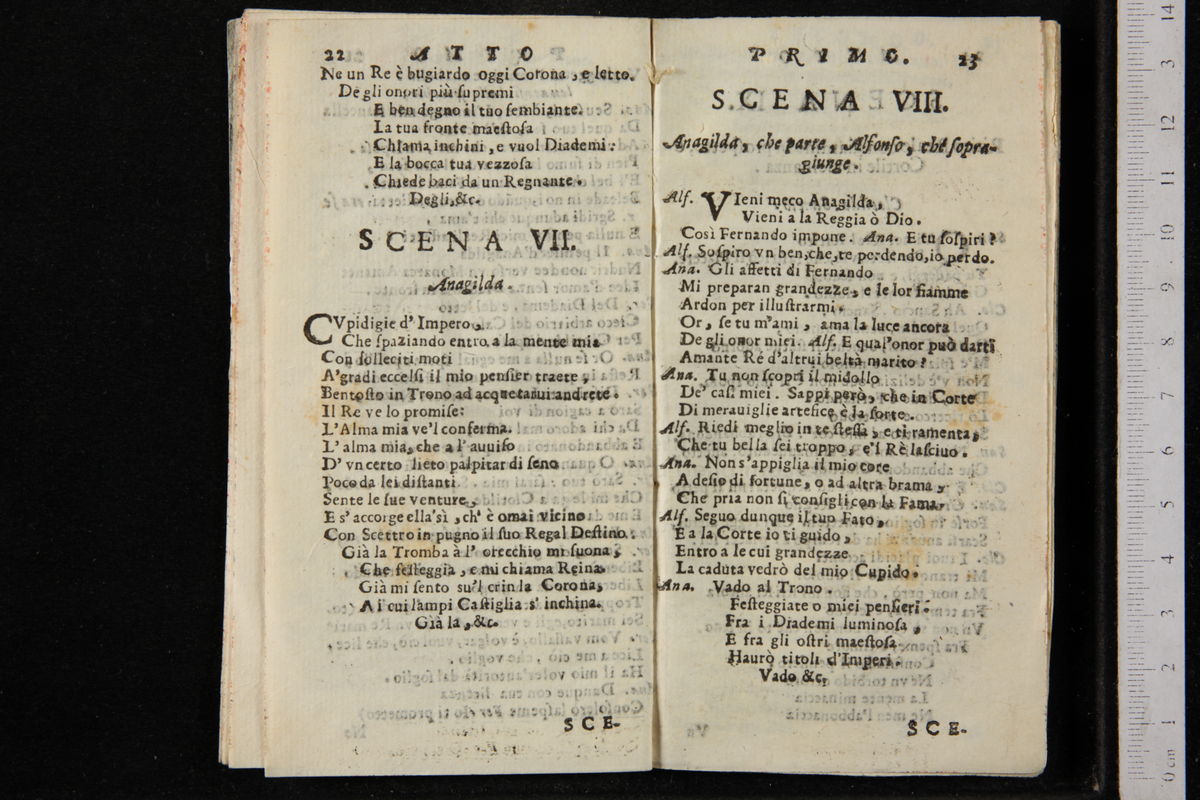 22 ATTO
Ne un Re è bugiardo oggi Corona, e letto.
Degli onori più supremi
E ben degno il tuo sembiante.
La tua fronte maestosa
Chiama inchini, e vuol Diademi:
E la bocca tua vezzosa
Chiede baci da un Regnante.
Degli, &c.
SCENA VII.
Anagilda.
CVpidigie d' Impero,
Che spaziando entro a la mente mia
Con solleciti moti
A' gradi eccelsi il mio pensier traete,
Bentosto in Trono ad acquetarui andrete.
Il Re ve lo promise:
L'Alma mia ve'l conferma.
L' alma mia, che a l' auuiso
D' vn certo lieto palpitar di seno
Poco da lei distanti
Sente le sue venture,
E s' accorge ella sì, ch' è omai vicino
Con Scettro in pugno il suo Regal Destino.
Già la Tromba à l' orecchio mi suona,
Che festeggia, e mi chiama Reina.
Già mi sento su'l crin la Corona,
A i cui lampi Castiglia s' inchina.
Già la, &c.
SCE-
PRIMO. 23
SCENA VIII.
Anagilda, che parte, Alfonso, che sopra-
giunge.
Alf. VIeni meco Anagilda,
Vieni a la Reggia ò Dio.
Così Fernando impone. Ana. E tu sospiri?
Alf. Sospiro vn ben, che, te perdendo, io perdo.
Ana. Gli affetti di Fernando
Mi preparan grandezze, e le lor fiamme
Ardon per illustrarmi.
Or, se tu m'ami, ama la luce ancora
De gli onor miei. Alf. E qual'onor può darti
Amante Rè d'altrui beltà marito?
Ana. Tu non scopri il midollo
De' casi miei. Sappi però, che in Corte
Di merauiglie artefice è la sorte.
Alf. Riedi meglio in te stessa, e ti ramenta,
Che tu bella sei troppo, e'l Rè lasciuo.
Ana. Non s'appiglia il mio core
A desio di fortune, o ad altra brama,
Che pria non si consigli con la Fama.
Alf. Seguo dunque il tuo Fato,
E a la Corte io ti guido,
Entro a le cui grandezze
La caduta vedrò del mio Cupido.
Ana. Vado al Trono.
Festeggiate o miei pensieri.
Fra i Diademi luminosa,
E fra gli ostri maestosa
Haurò titoli d'Imperi.
Vado &c.
SCE-